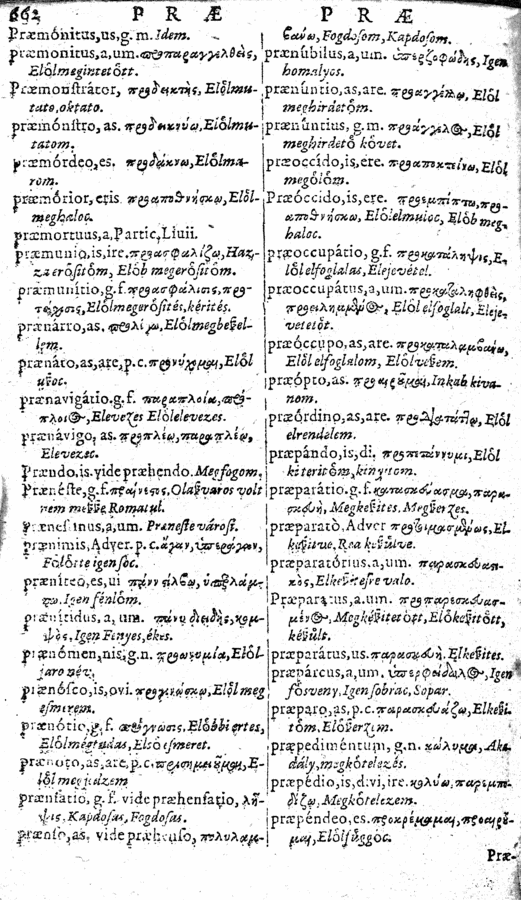 662 P R Æ
Præmónitus, us, g. m. Idem.
Præmonitus, a, um. προπαραγγελθεὶς,
Elölmegintetött.
Præmonstrátor, προδεικτὴς, Elölmu-
tato, oktato.
præmónstro, as. προδεικνύω, Elölmu-
tatom.
præmórdeo, es. προδάκνω, Elölma-
rom.
præmórior, eris προαποθνήσκω, Elöl-
meghaloc.
præmortuus, a, Partic, Liuii.
præmunio, is, ire. προασφαλίζω, Haz-
za erösitöm, Elöb megerösitöm.
præmunítio, g. f. προασφάλισις, προ-
τείχισις, Elölmegerösités, kérités.
prænárro, as. Elölmegbeszel-
lem.
prænáto, as, are, p. c. προνήχομαι, Elöl
uszoc.
prænavigátio. g. f. παραπλοία,
Elevezes Elölelevezes.
prænávigo, as. προπλέω, παραπλέω,
Elevezec.
Prændo. is. vide præhendo. Megfogom.
Prænéste, g. f. πραίνεστος, Olaszvaros volt
nem messze Romatul.
Prænestinus, a, um. Præneste városi.
prænimis, Adver. p. c. ἄγαν, ὑπεράγαν,
Fölötte igen soc.
præníteo, es, ui
Igen fénlöm.
prænítidus, a, um.
Igen Fenyes, ékes.
prænómen, nis, g. n. προωνυμία, Elöl-
jaro név.
prænósco, is, ovi. προγινώσκω, Elöl meg
esmerem.
prænótio, g. f. πρόγνωσις, Elöbbi ertes,
Elölmegtudas, Elsö esmeret.
prænoto, as, are, p. c. προσημειοῦμαι, E-
löl megjedzem
prænsatio, g. f. vide præhensatio, λῆ-
ψις, Kapdosas, Fogdosas.
prænso, as. vide præhenso,
P R Æ
Fogdosom, Kapdosom.
prænúbilus, a, um. ὑπερζοφώδης, Igen
homalyos.
prænúntio, as, are. προαγγέλλω, Elöl
meghirdetöm.
prænúntius, g. m. προάγγελος, Elöl
meghirdetö követ.
præoccído, is, ere. προαποκτείνω, Elöl
megölöm.
Præóccido, is, ere. προεμπίπτω, προ-
αποθνήσκω, Elölelmuloc, Elöb meg-
haloc.
præoccupátio, g. f. προκατάληψις, E-
löl elfoglalas, Elejevétel.
præoccupátus, a, um. προκαταληφθεὶς,
προειλημμένος, Elöl elfoglalt, Eleje-
vetetöt.
præóccupo, as, are. προκαταλαμβάνω,
Elöl elfoglalom, Elölveszem.
præópto, as. προαιροῦμαι, Inkab kiva-
nom.
præórdino, as, are. προδιατάττω, Elöl
elrendelem.
præpándo, is, di. προπετάννυμι, Elöl
kiteritöm, kinyitom.
præparátio. g. f. κατασκεύασμα, παρα-
σκευὴ, Megkeszites, Megszerzes.
præparatò, Adver προητοιμασμένως, El-
keszitue, Rea keszülve.
præparatórius, a, um. παρασκευαστι-
κὸς, Elkeszitesre valo.
Præparatus, a, um. προπαρεσκευασ-
μένος, Megkeszitetött, Elökeszitött,
keszült.
præparátus, us. παρασκευὴ. Elkeszites.
præpárcus, a, um. ὑπερφειδωλὸς, Igen
fösveny, Igen sobrac, Sopar.
præparo, as, p. c. παρασκευάζω, Elkeszi-
töm, Elöszerzim.
præpediméntum, g. n. κώλυμα, Aka-
dály, megkötelezés.
præpédio, is, divi, ire. κωλύω, παρεμπο-
δίζω, Megkötelezem.
præpéndeo, es. προκρέμαμαι,
Elölfüggöc.
Præ-